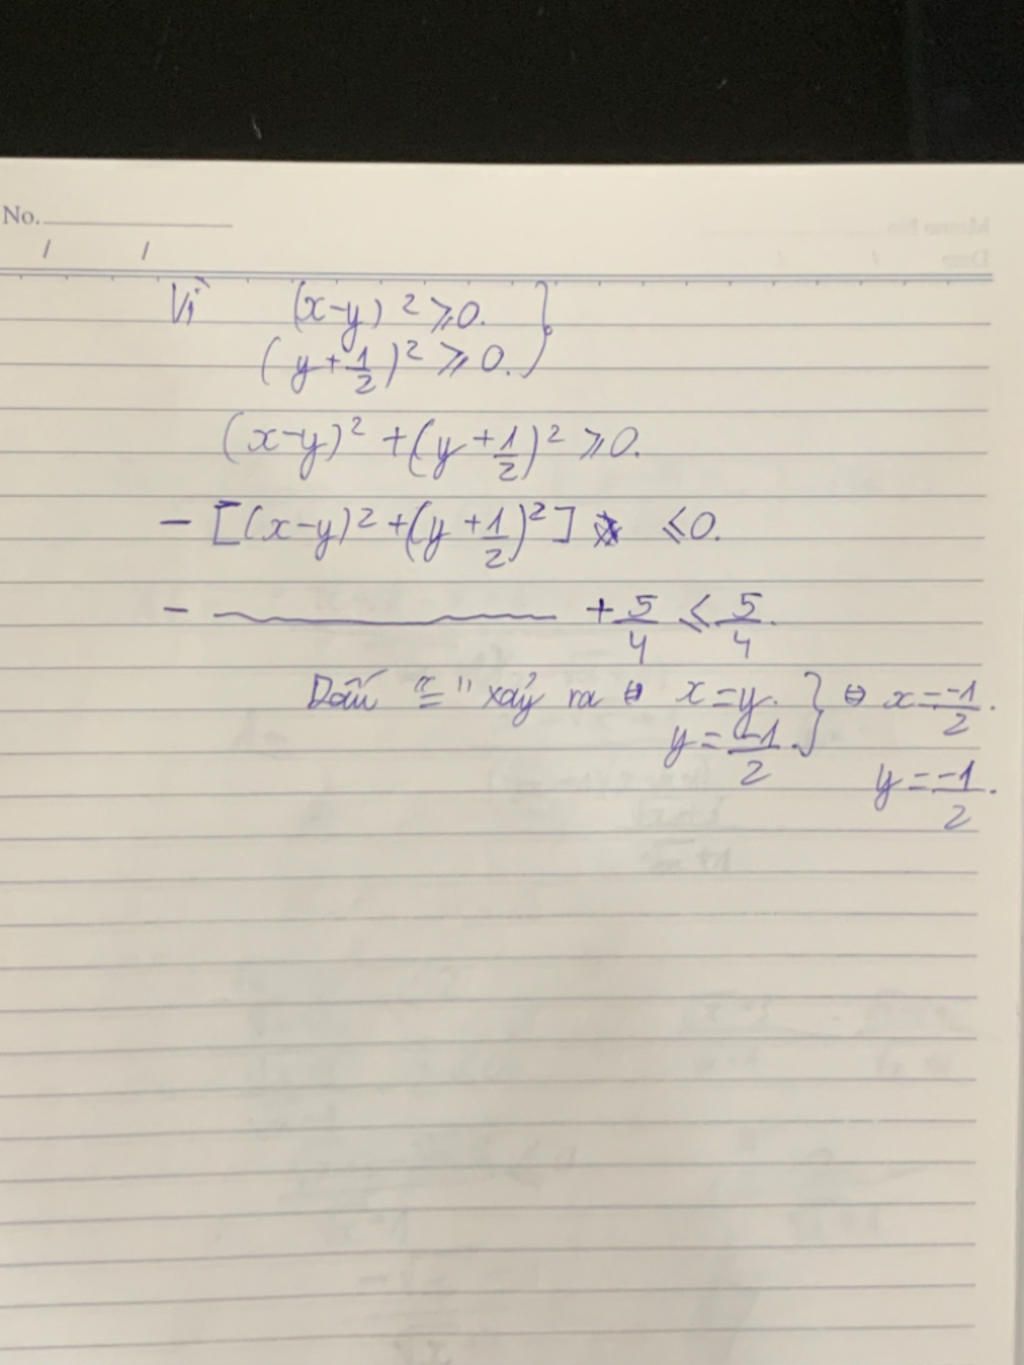 No.
/ /
Vì (x-y)² ⩾0.
(y+1/2)² ⩾0.
(x-y)² +(y+1/2)² ⩾0.
- [(x-y)²+(y+1/2)²] ⩽0.
- + 5/4 ⩽ 5/4.
Dấu "=" xảy ra ⇔ x=y. } ⇔ x=-1/2.
y=-1/2.
y=-1/2.